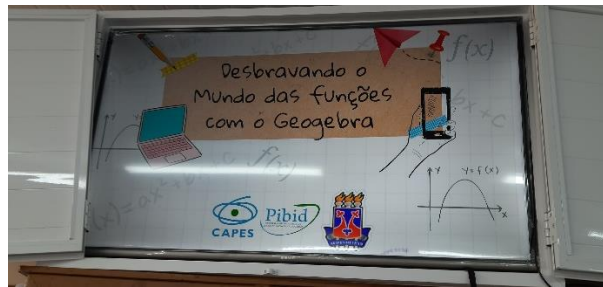 Desbravando o
Mundo das funções
com o Geogebra
f(x)
bx + c
f(x)
(x) = ax² + bx + c
y
y = f(x)
x
CAPES
Pibid